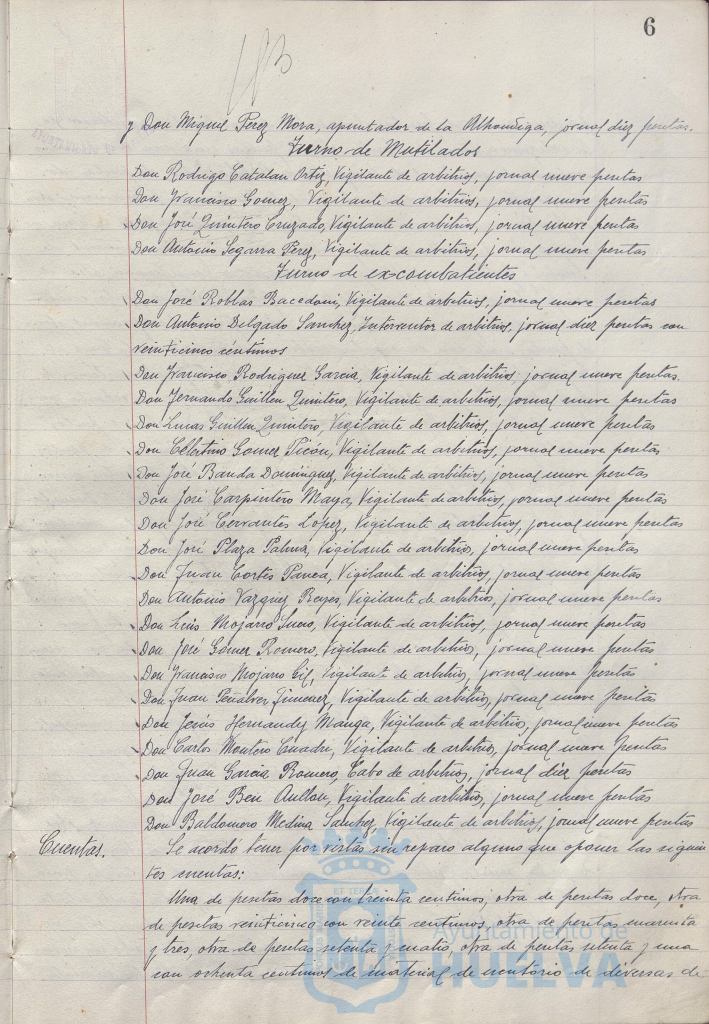 6
y Don Miguel Perez Mora, apuntador de la Alhondiga, jornal diez pesetas.
Turno de Mutilados
Don Rodrigo Catalan Ortiz, Vigilante de arbitrios, jornal nueve pesetas
Don Francisco Gomez, Vigilante de arbitrios, jornal nueve pesetas
Don José Quintero Cruzado, Vigilante de arbitrios, jornal nueve pesetas
Don Antonio Segarra Perez, Vigilante de arbitrios, jornal nueve pesetas
Turno de excombatientes
Don José Roblas, Vigilante de arbitrios, jornal nueve pesetas
Don Antonio Delgado Sanchez, Interventor de arbitrios, jornal diez pesetas con
veinticinco céntimos
Don Francisco Rodriguez Garcia, Vigilante de arbitrios jornal nueve pesetas.
Don Fernando Guillen Quintero, Vigilante de arbitrios, jornal nueve pesetas
Don Lucas Guillen Quintero, Vigilante de arbitrios, jornal nueve pesetas
Don Celestino Gomez Picón, Vigilante de arbitrios, jornal nueve pesetas
Don José Banda Dominguez, Vigilante de arbitrios, jornal nueve pesetas
Don José Carpintero Maya, Vigilante de arbitrios, jornal nueve pesetas
Don José Cervantes Lopez, Vigilante de arbitrios, jornal nueve pesetas
Don José Plaza Palma, Vigilante de arbitrios, jornal nueve pesetas
Don Juan Cortés, Vigilante de arbitrios, jornal nueve pesetas
Don Antonio Vazquez Reyes, Vigilante de arbitrios, jornal nueve pesetas
Don Luis Mojarro, Vigilante de arbitrios, jornal nueve pesetas
Don José Gómez Romero, Vigilante de arbitrios, jornal nueve pesetas
Don Francisco Mojarro Gil, Vigilante de arbitrios, jornal nueve pesetas
Don Juan Peñalver Jimenez, Vigilante de arbitrios, jornal nueve pesetas
Don Jesús Hernandez Manga, Vigilante de arbitrios, jornal nueve pesetas
Don Carlos Montero Cuadri, Vigilante de arbitrios, jornal nueve pesetas
Don Juan Garcia Romero, Cabo de arbitrios, jornal diez pesetas
Don José Ben Aullan, Vigilante de arbitrios, jornal nueve pesetas
Don Baldomero Medina Sanchez, Vigilante de arbitrios, jornal nueve pesetas
Cuentas. Se acordó tener por vistas sin reparo alguno que oponer las siguien
tes cuentas:
Una de pesetas doce con treinta centimos, otra de pesetas doce, otra
de pesetas veinticinco con veinte centimos, otra de pesetas cuarenta
y tres, otra de pesetas setenta y cuatro, otra de pesetas setenta y una
con ochenta centimos de material de escritorio de diversas de
Ayuntamiento de
HUELVA